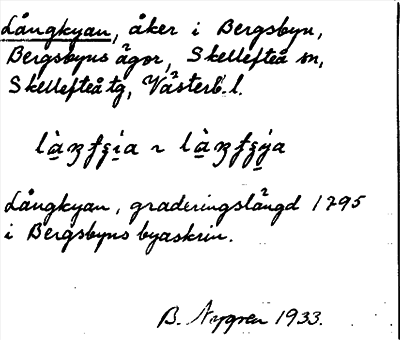 Långkyan, åker i Bergsbyn,
Bergsbyns ägor, Skellefteå sn,
Skellefteå tg, Västerb. l.
Långkyan, graderingslängd 1795
i Bergsbyns byaskrin.
B. Nygren 1933.